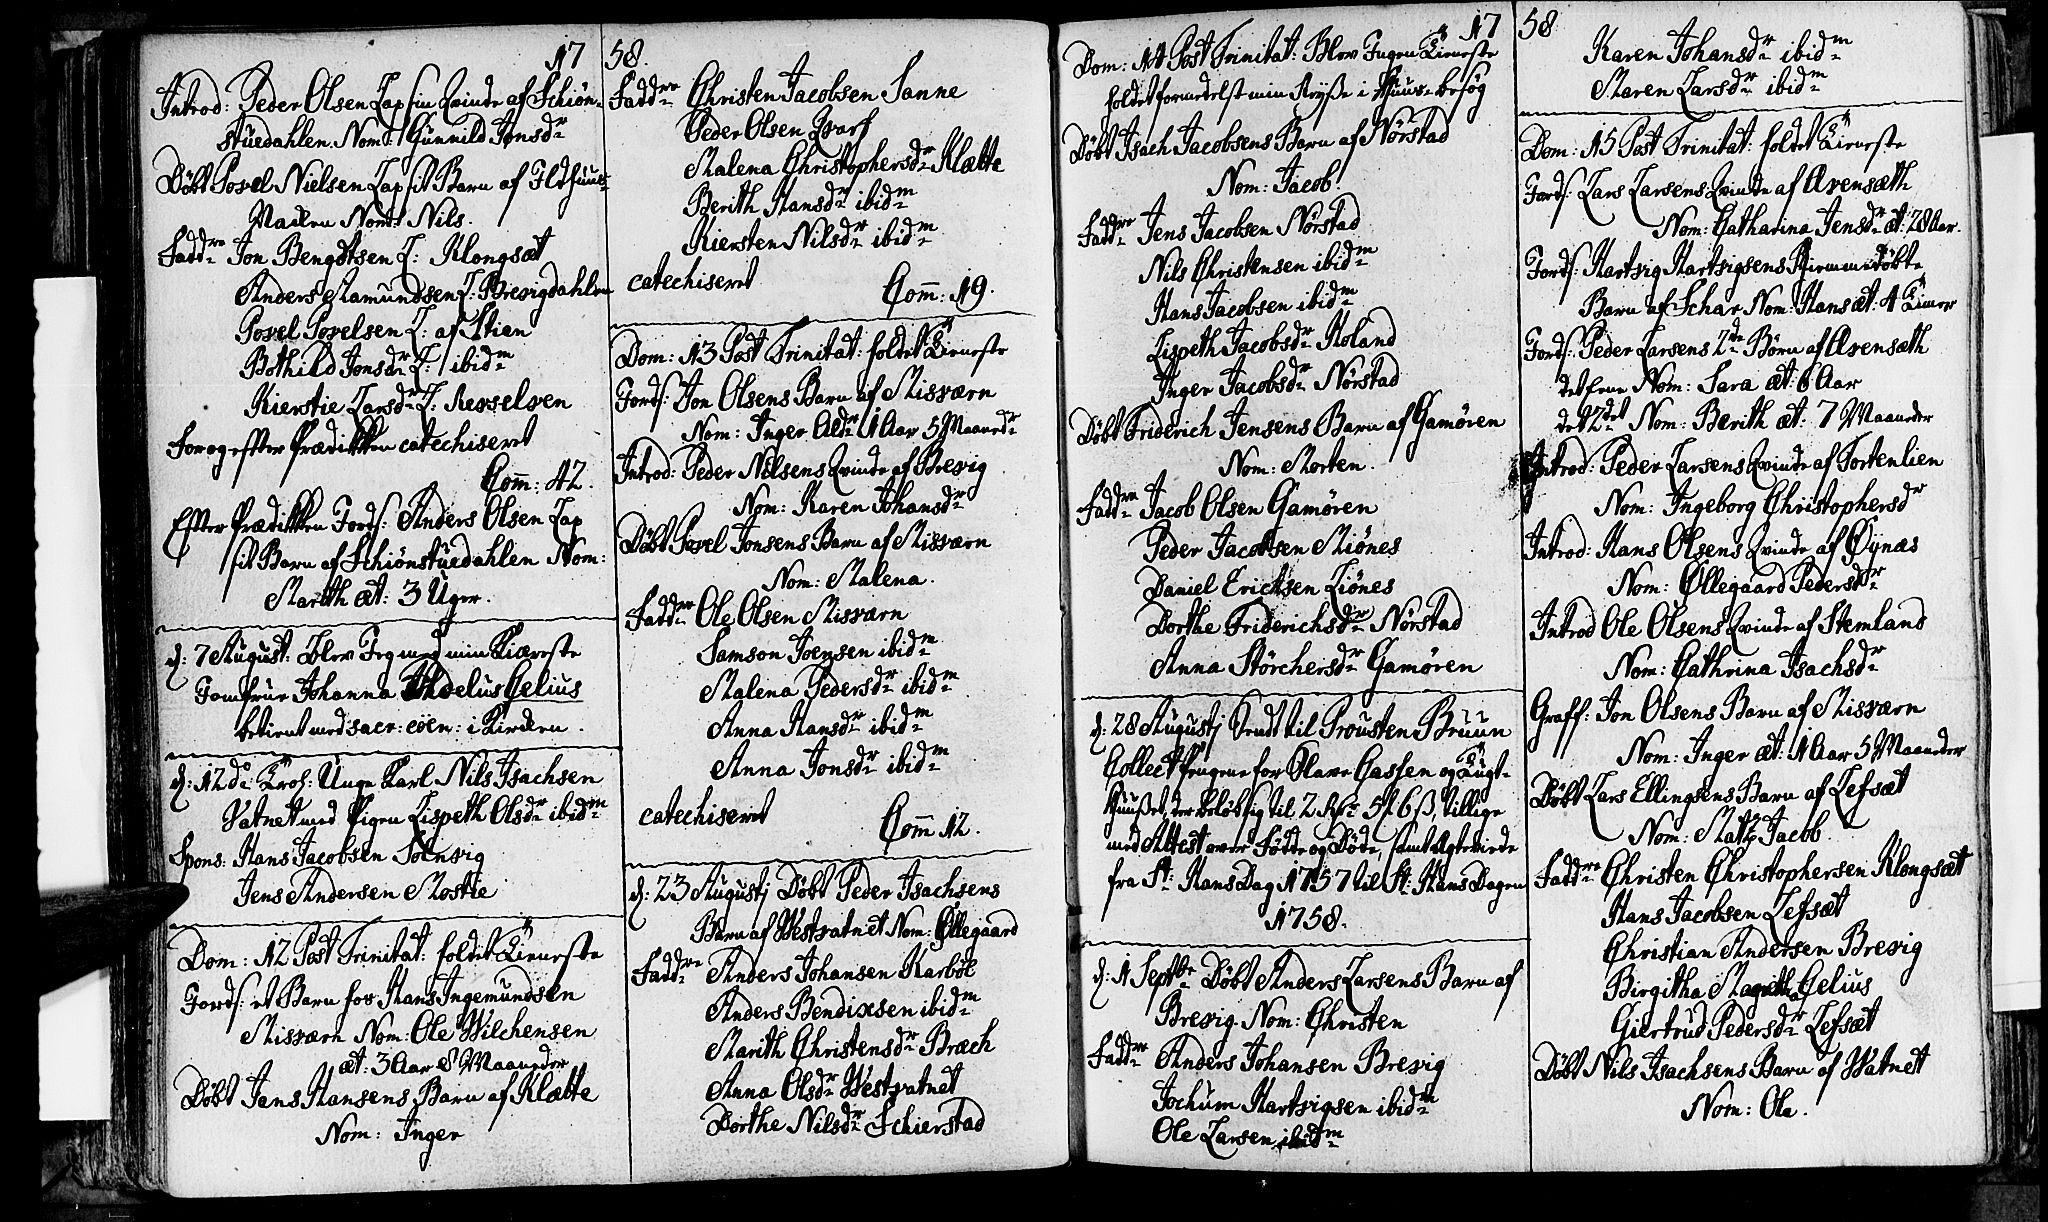 17
Introd: Peder Olsen Lap sin Qvinde af Schiøn-
stuedahlen. Nom: Gunnild Jonsdr
Døbt Povel Nielsen Lap sit Barn af Ildhuus-
Nom: Nils.
Faddre Jon Bengtsen L: Klongsæt
Anders Aamundsen L: Brevigdahlen
Povel Povelsen L: af Stien
Bothild Jonsdr L: ibidm
Kierstie Larsdr L: Kesselven
For og efter Prædikken catechiseret
Com̄: 42.
Efter Prædikken Jords: Anders Olsen Lap
sit Barn af Schiønstuedahlen Nom:
Marith æt: 3 Uger.
d: 7 August: blev Jeg med min Kiæreste
Jomfrue Johanna Gelius
betient med sacr: coen: i Kirken.
d: 12 do Unge Karl Nils Isachsen
Vatnet med Pigen Lispeth Olsdr ibidm
Spons: Hans Jacobsen Solnsvig
Jens Andersen Mostie
Dom: 12 Post Trinitat: holdet Tieneste
Jords: et Barn for Hans Ingemundsen
Misværn Nom: Ole Wilchensen
æt: 3 Aar 8 Maaneder
Døbt Jans Hansens Barn af Klætte
Nom: Inger
58.
Faddre Christen Jacobsen Sanne
Peder Olsen Qvarf
Malena Christophersdr Klætte
Berith Hansdr ibidm
Kiersten Nilsdr ibidm
catechiseret Com̄: 19.
Dom: 13 Post Trinitat: holdet Tieneste
Jords: Jon Olsens Barn af Misværn
Nom: Inger Aldr 1 Aar 5 Maandr
Introd: Peder Nilsens Qvinde af Brevig
Nom: Karen Johansdr
Døbt Povel Jonsens Barn af Misværn
Nom: Malena.
Faddre Ole Olsen Misværn
Samson Joensen ibidm
Malena Pedersdr ibidm
Anna Hansdr ibidm
Anna Jonsdr ibidm
catechiseret Com̄ 12.
d: 23 Augustj Døbt Peder Isachsens
Barn af Westvatnet Nom: Øllegaard
Faddre Anders Johansen Karbøl
Anders Bendixsen ibidm
Marith Christensdr Bræch
Anna Olsdr Westvatnet
Dorthe Nilsdr Schierstad
17
Dom: 14 Post Trinitat: Blev Ingen Tieneste
holdet formedelst min Reyse i Huus-besøg
Døbt Isach Jacobsens Barn af Nørstad
Nom: Jacob.
Faddre Jens Jacobsen Nørstad
Nils Christensen ibidm
Hans Jacobsen ibidm
Lispeth Jacobsdr Holand
Inger Jacobsdr Nørstad
Døbt Friderich Jensens Barn af Gamøren
Nom: Morten.
Faddre Jacob Olsen Gamøren
Peder Jacobsen Miønes
Daniel Erichsen Liønes
Dorthe Friderichsdr Nørstad
Anna Størchersdr Gamøren
d: 28 Augustj Sendt til Prousten Bruun
Collect Pengene for Slave Cassen og Tugt-
huuset, der beløb sig til 2 Rdr 5 ₰ 6 ß, tillige
med Attest over Fødde og Døde, samt Egteviede
fra St: Hans Dag 1757 til St: Hans Dagen
1758.
d: 1 Septbr Døbt Anders Larsens Barn af
Brevig. Nom: Christen
Faddre Anders Johansen Brevig
Jochum Hartvigsen ibidm
Ole Larsen ibidm
58
Karen Johansdr ibidm
Maren Larsdr ibidm
Dom: 15 Post Trinitat: holdet Tieneste
Jords: Lars Larsens Qvinde af Avensæth
Nom: Catharina Jensdr æt: 28 Aar.
Jords: Hartvig Hartvigsens Hiemmedøbte
Barn af Schar Nom: Hans æt: 4 Timer
Jords: Peder Larsens 2de Børn af Avensæth
det Ene Nom: Sara æt: 6 Aar
det 2det Nom: Berith æt: 7 Maaneder
Introd: Peder Larsens Qvinde af Tortenlien
Nom: Ingeborg Christophersdr
Introd: Hans Olsens Qvinde af Øynæs
Nom: Øllegaard Pedersdr
Introd Ole Olsens Qvinde af Stemland
Nom: Cathrina Isachsdr
Graff: Jon Olsens Barn af Misværn
Nom: Inger æt: 1 Aar 5 Maaneder
Døbt Lars Ellingsens Barn af Lefsæt
Nom: Jacob.
Faddre Christen Christophersen Klongsæt
Hans Jacobsen Lefsæt
Christian Andersen Brevig
Birgitha Gelius
Giertrud Pedersdr Lefsæt
Døbt Nils Isachsens Barn af Watnet
Nom: Ole.